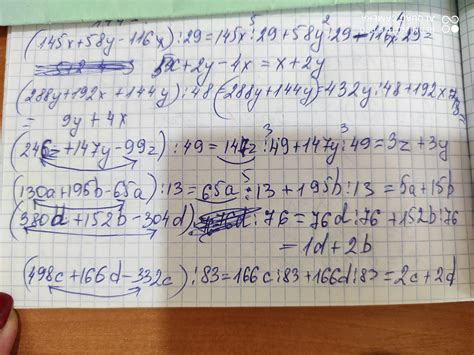 (145x+58y-116x):29=145x:29+58y:29-116x:29=
5x+2y-4x=x+2y
(288y+192x+144y):48=(288y+144y)=432y:48+192x:48
= 9y+4x
(246z+147y-99z):49=147z:49+147y:49=3z+3y
(130a+195b-65a):13=65a:13+195b:13=5a+15b
(380d+152b-304d):76=76d:76+152b:76
=1d+2b
(498c+166d-332c):83=166c:83+166d:83=2c+2d